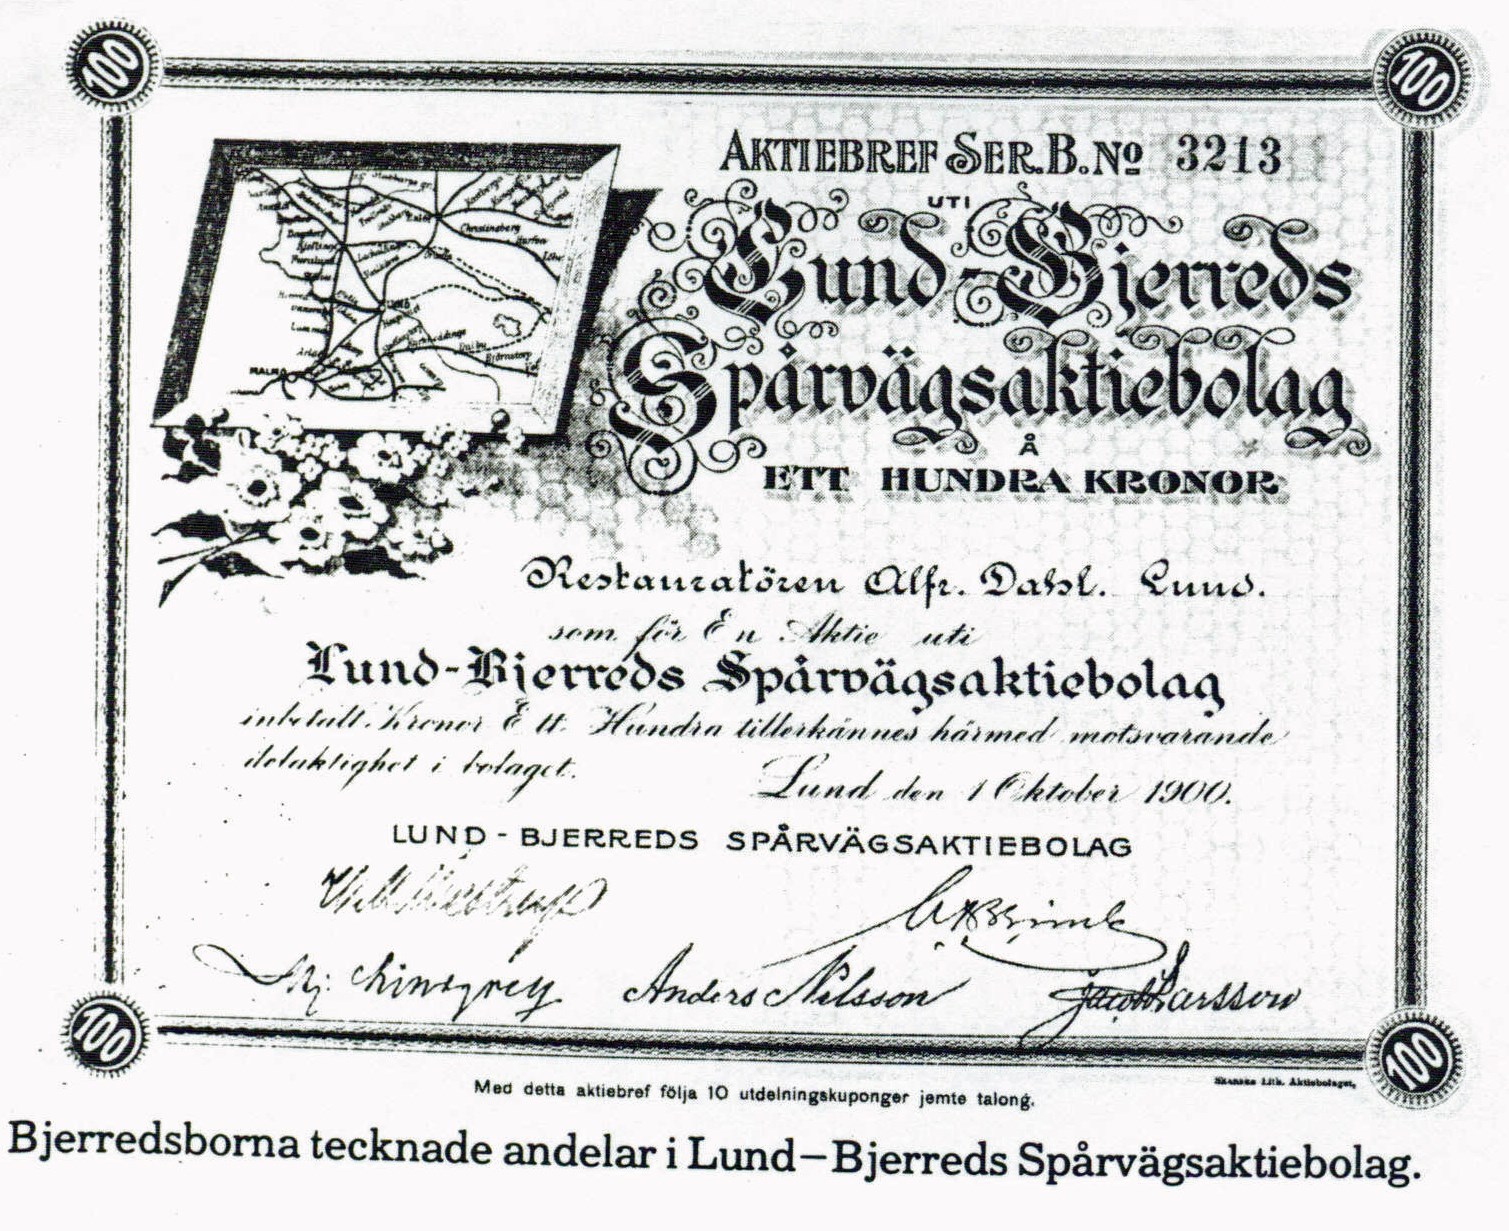 100
100
AKTIEBREF SER. B. No 3213
UTI
Lund-Bjerreds
Spårvägsaktiebolag
Å
ETT HUNDRA KRONOR
MALMÖ
Restauratören Alfr. Dahl. Lund.
som för En Aktie uti
Lund-Bjerreds Spårvägsaktiebolag
inbetalt Kronor Ett Hundra tillerkännes härmed motsvarande
delaktighet i bolaget.
Lund den 1 Oktober 1900.
LUND - BJERREDS SPÅRVÄGSAKTIEBOLAG
Anders Nilsson
Jacob Larsson
100
100
Skånska Lith. Aktiebolaget,
Med detta aktiebref följa 10 utdelningskuponger jemte talong.
Bjerredsborna tecknade andelar i Lund–Bjerreds Spårvägsaktiebolag.